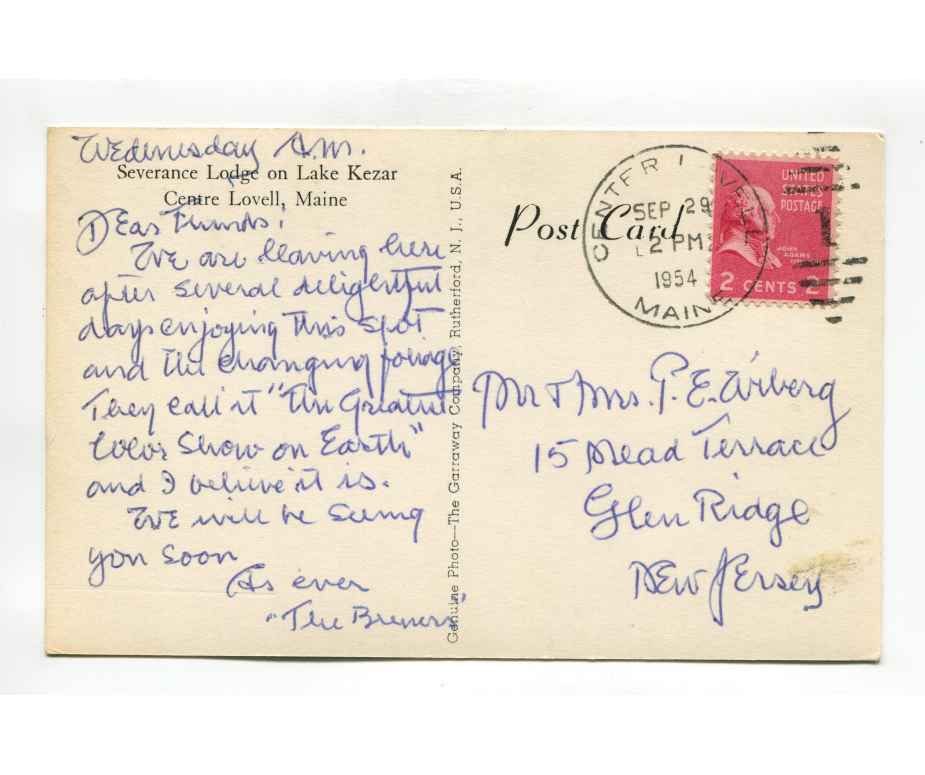 Wednesday A.M.
Severance Lodge on Lake Kezar
Centre Lovell, Maine
Dear Friends:
We are leaving here
after several delightful
days enjoying this spot
and the changing foliage
They call it "The Greatest
Color Show on Earth"
and I believe it is.
We will be seeing
you soon
As ever
"The
Genuine Photo—The Garraway Company, Rutherford, N. J., U.S.A.
Post Card
CENTER LOVELL
SEP 29
2 PM
1954
MAINE
UNITED
STATES
POSTAGE
JOHN
ADAMS
2 CENTS 2
1
Mr & Mrs. P. E.
15 Mead Terrace
Glen Ridge
New Jersey